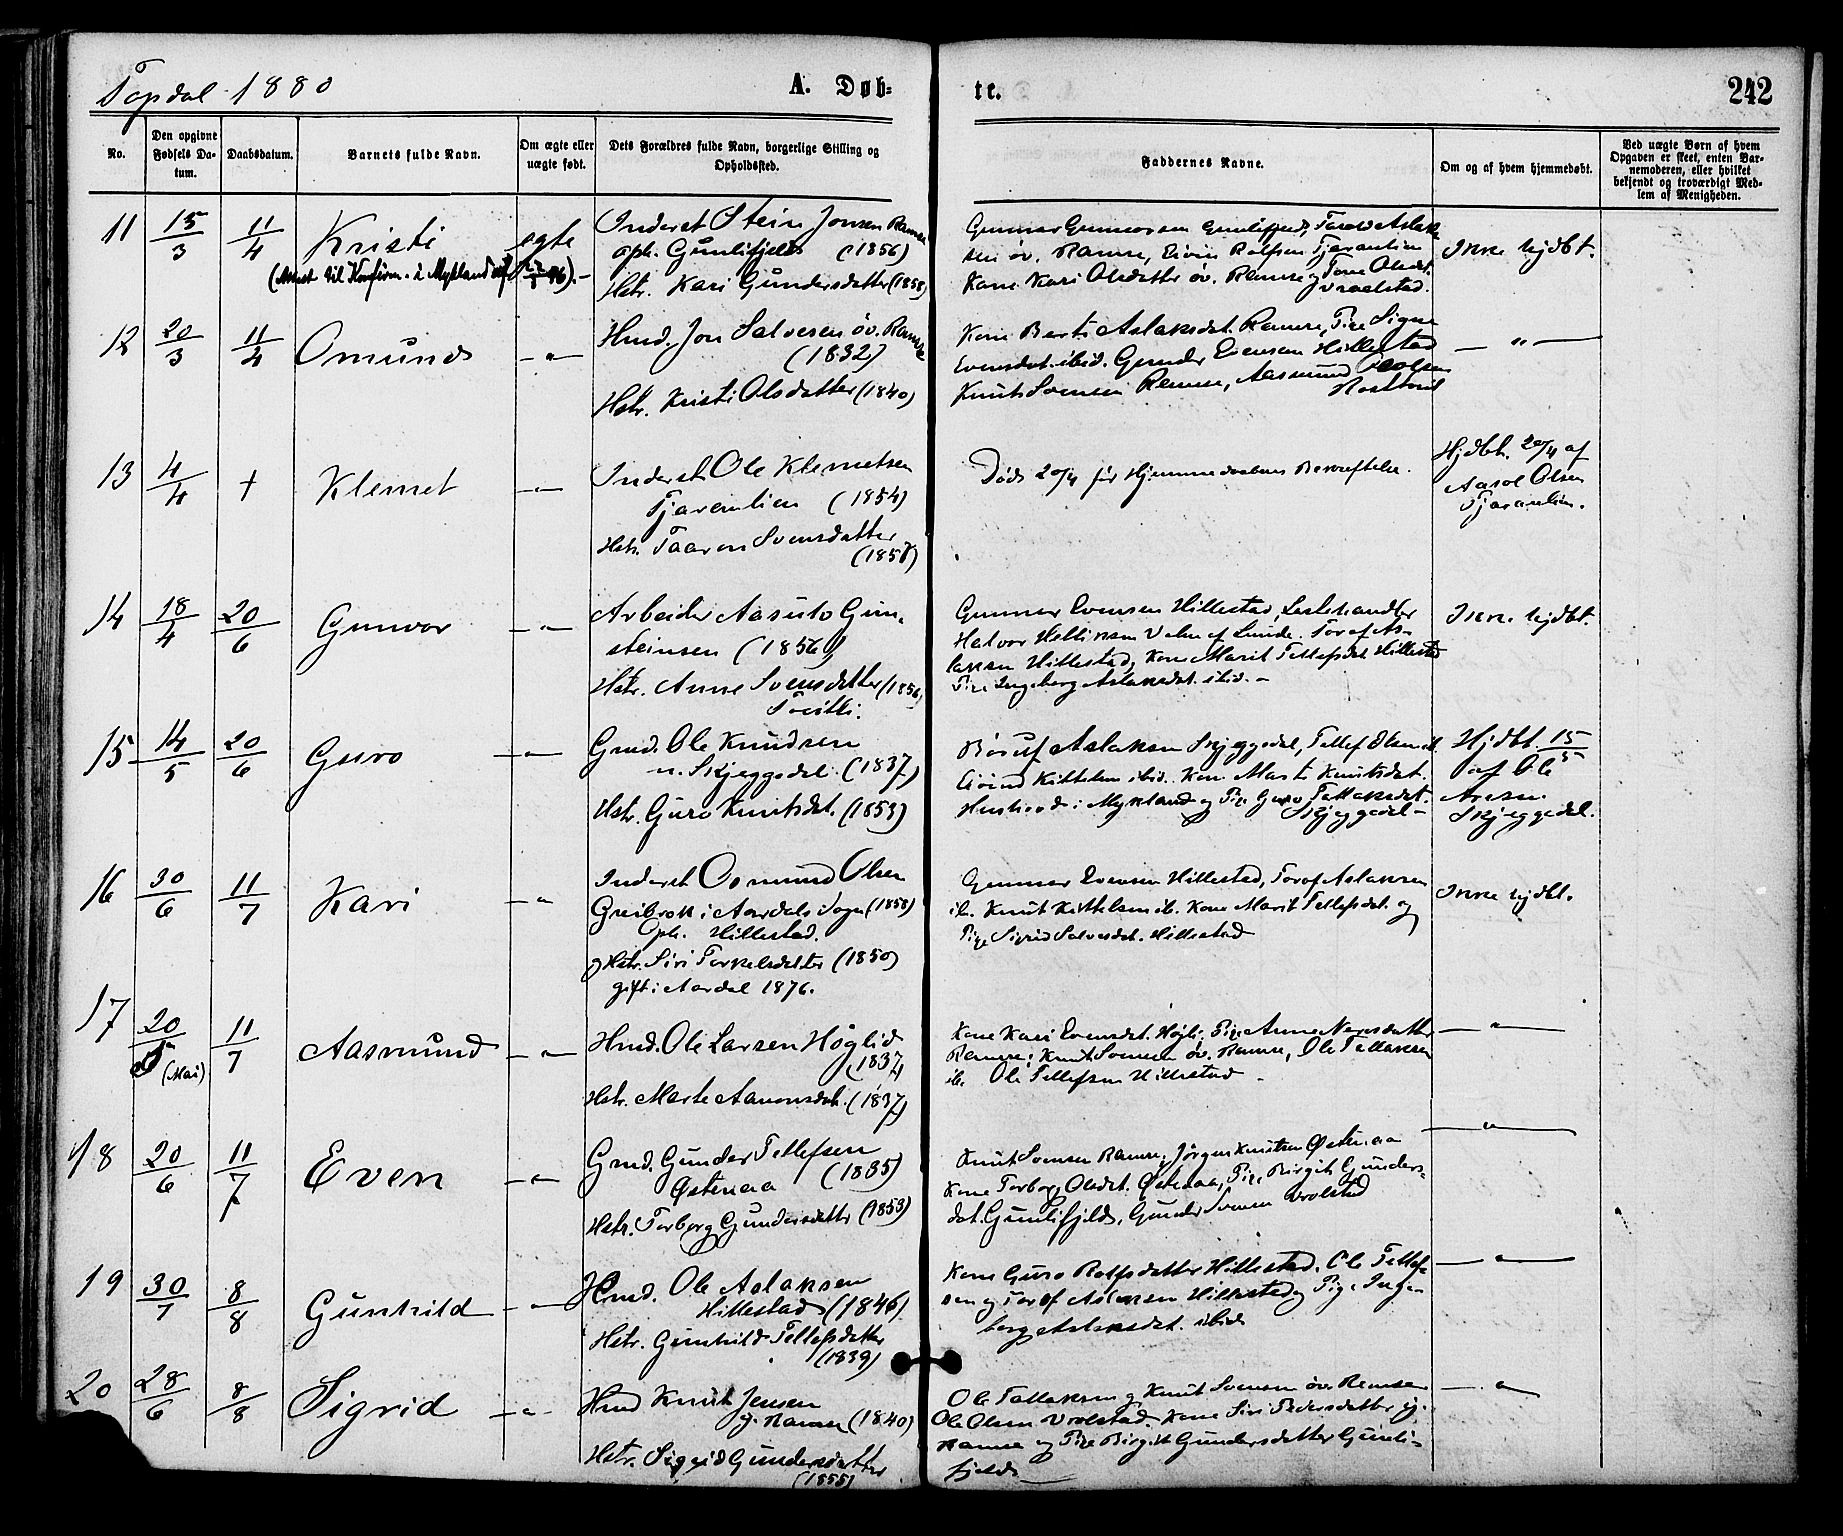 Topdal 1880
A. Døb-
te.
242
No.
Den opgivne Fødsels Da-tum.
Daabsdatum.
Barnets fulde Navn.
Om ægte eller uægte født.
Dets Forældres fulde Navn, borgerlige Stilling og Opholdssted.
Faddernes Navne.
Om og af hvem hjemmedøbt.
Ved uægte Børn af hvem Opgaven er skeet, enten Bar-nemoderen, eller hvilket bekjendt og troværdigt Med-lem af Menigheden.
11
15/3
11/4
Kristi
ægte
(Attest til Konfirm. i Mykland
Inderst Stein Jonsen Ramse
oph. Gunlifjeld (1856)
Hstr. Kari Gundersdatter (1858)
Gunnar Gunnarsen Gunlifjeld, Aslak-
sen øv. Ramse, Eivin Rolfsen Tjaranlien
Kone Kari Olsdatter øv. Ramse og Tone Olsdt.
Vraalstad.
Ikke hjdbt.
12
20/3
11/4
Omund
-"-
Hmd. Jon Salvesen øv. Ramse
(1832)
Hstr. Kristi Olsdatter (1840)
Kone Berte Aslaksdat. Ramse, Pige Signe
Evensdat. ibid. Gunder Evensen Hillestad
Knut Svensen Ramse, Aasmund Olsen
— " —
13
4/4
+
Klemet
-"-
Inderst Ole Klemetsen
Tjaranlien (1854)
Hstr. Taaron Svensdatter
(1857)
Død 20/4 før Hjemmedaabens Bekræftelse.
Hjdbt. 20/4 af
Olsen
Tjaranlien.
14
18/4
20/6
Gunvor
-"-
Arbeider Aasulv Gun-
steinsen (1856)
Hstr. Anne Svensdatter (1856)
Gunnar Evensen Hillestad,
Halvor
laksen Hillestad, Kone Marit Tellefsdat. Hillestad
Pige Ingeborg Aslaksdat. ibid. -
Ikke hjdbt.
15
14/5
20/6
Guro
-"-
Gmd. Ole Knudsen
n. Skjeggedal. (1837)
Hstr. Guro Knutsdat. (1853)
Aslaksen Skjeggedal, Tellef Olsen ib.
Eivind Kittelsen ibid. Kone Marte Knutsdat.
i Mykland og Pige Guro Tallaksdat.
Skjeggedal -
Hjdbt. 15/5
af Ole
Skjeggedal.
16
30/6
11/7
Kari
-"-
Inderst Osmund Olsen
Greibrok i Aardals Sogn (1858)
oph. Hillestad.
og Hstr. Siri Torkelsdatter (1850)
gift i Aardal 1876.
Gunnar Evensen Hillestad, Torof Aslaksen
ib. Knut Kittelsen ib. Kone Marit Tellefsdat. og
Pige Sigrid Salvesdat. Hillestad
Ikke hjdbt.
17
20/5 (Mai)
11/7
Aasmund
-"-
Hmd. Ole Larsen Høglid
(1837)
Hstr. Marte Aanonsdat. (1837)
Kone Kari Evensdat. Høgli, Pige Anne
Ramse, Knut Svensen øv. Ramse, Ole Tallaksen
ib. Ole Tellefsen Hillestad -
— " —
18
20/6
11/7
Even
-"-
Gmd. Gunder Tellefsen
Østenaa (1835)
Hstr. Torborg Gundersdatter (1853)
Knut Svensen Ramse, Jørgen Knutsen Østenaa
Kone Torborg Olsdat. Østenaa, Pige Birgit Gunders-
dat. Gunlifjeld, Gunder Svensen Vrolstad
— " —
19
30/7
8/8
Gunhild
-"-
Hmd. Ole Aslaksen
Hillestad (1846)
Hstr. Gunhild Tellefsdatter
(1839)
Kone Guro Rolfsdatter Hillestad, Ole Tellef-
sen og Torof Aslaksen Hillestad og Pige Inge-
borg Aslaksdat. ibid.
— " —
20
28/6
8/8
Sigrid
-"-
Hmd Knut Jensen
y. Ramse (1840)
Hstr. Sigrid Gundersdatter
(1855)
Ole Tallaksen og Knut Svensen øv. Ramse
Ole Olsen Vrolstad. Kone Siri Pedersdatter y.
Ramse og Pige Birgit Gundersdatter Gunli-
fjeld
— " —